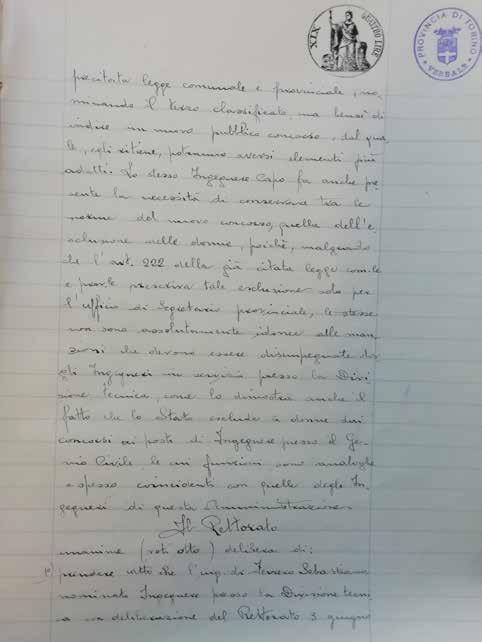 XIX
QUATTRO LIRE
PROVINCIA DI TORINO
VERBALE
precitata legge comunale e provinciale, no-
minando il terzo classificato, ma bensì di
indire un nuovo pubblico concorso, dal qua-
le, egli ritiene, potranno aversi elementi più
adatti. Lo stesso Ingegnere Capo fa anche pre-
sente la necessità di conservare tra le
norme del nuovo concorso, quella dell'e-
sclusione delle donne, poichè, malgrado
che l'art. 222 della già citata legge com.le
e prov.le prescriva tale esclusione solo per
l'ufficio di Segretario provinciale, le stesse
non sono assolutamente idonee alle man-
sioni che devono essere disimpegnate da-
gli Ingegneri in servizio presso la Divi-
sione tecnica, come lo dimostra anche il
fatto che lo Stato esclude le donne dai
concorsi ai posti di Ingegnere presso il Ge-
nio Civile le cui funzioni sono analoghe
e spesso coincidenti con quelle degli In-
gegneri di questa Amministrazione.
Il Rettorato
unanime (voti otto) delibera di:
1°) prendere atto che l'ing. Ferrero Sebastiano
nominato Ingegnere presso la Divisione tecni-
ca con deliberazione del Rettorato 3 giugno